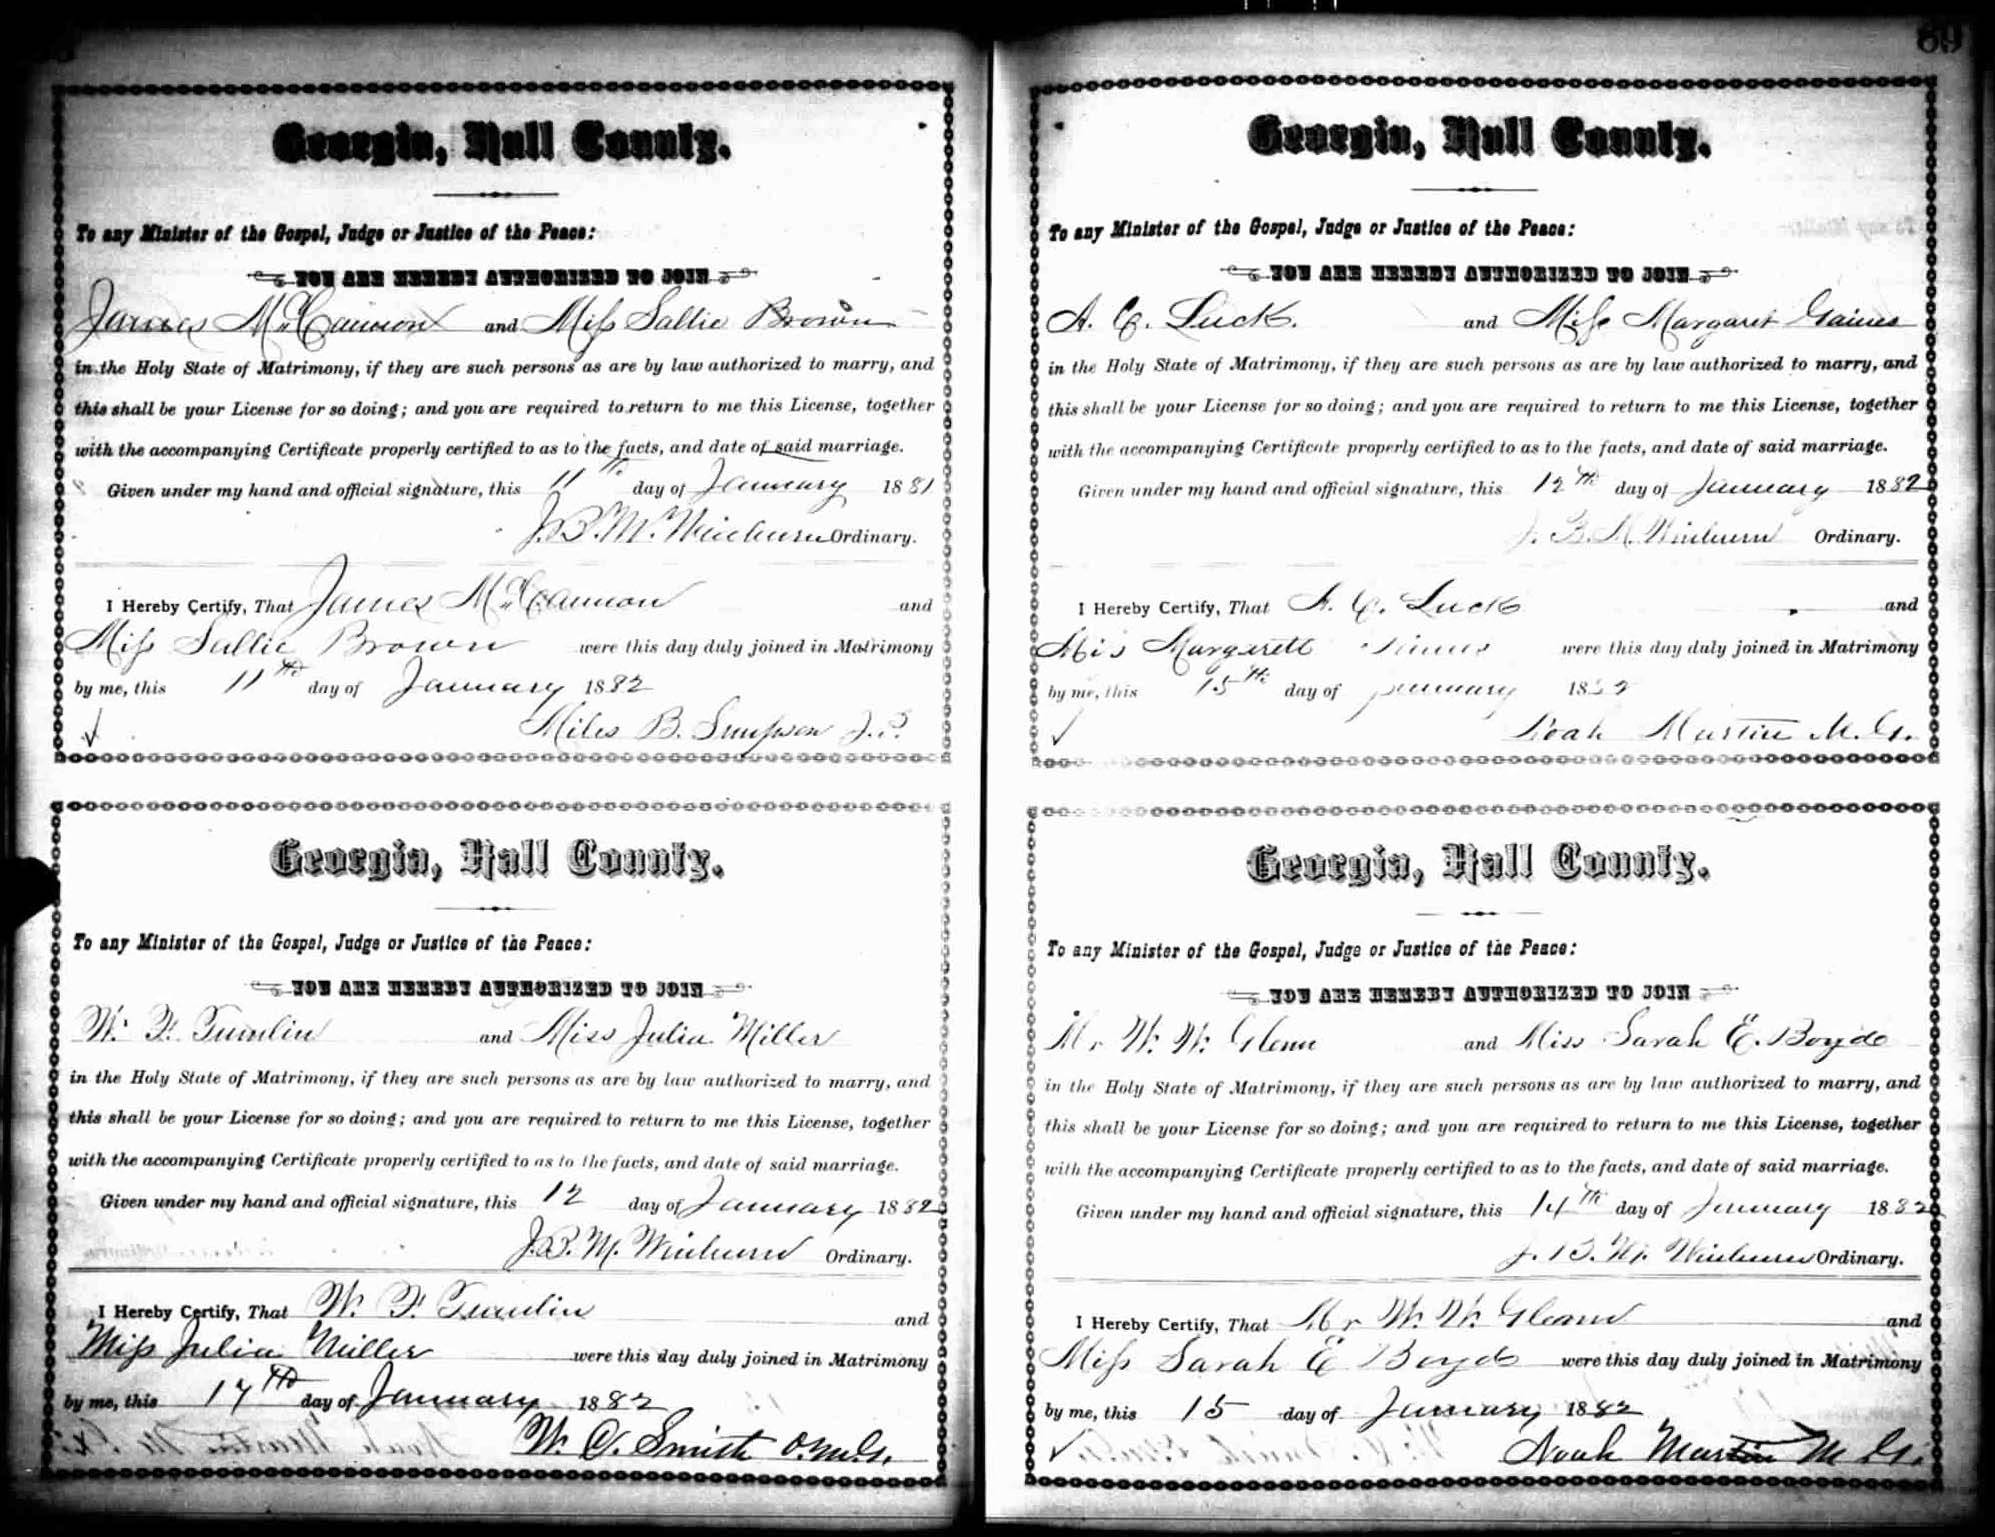 Georgia, Hall County.
To any Minister of the Gospel, Judge or Justice of the Peace:
YOU ARE HEREBY AUTHORIZED TO JOIN
James McCannon and Miss Sallie Brown
in the Holy State of Matrimony, if they are such persons as are by law authorized to marry, and
this shall be your License for so doing; and you are required to return to me this License, together
with the accompanying Certificate properly certified to as to the facts, and date of said marriage.
Given under my hand and official signature, this 11th day of January 1881
J. B. M. Winburn Ordinary.
I Hereby Certify, That James McCannon and
Miss Sallie Brown were this day duly joined in Matrimony
by me, this 11th day of January 1882
Miles B. Simpson J. P.
Georgia, Hall County.
To any Minister of the Gospel, Judge or Justice of the Peace:
YOU ARE HEREBY AUTHORIZED TO JOIN
W. F. Tumlin and Miss Julia Miller
in the Holy State of Matrimony, if they are such persons as are by law authorized to marry, and
this shall be your License for so doing; and you are required to return to me this License, together
with the accompanying Certificate properly certified to as to the facts, and date of said marriage.
Given under my hand and official signature, this 12 day of January 1882
J. B. M. Winburn Ordinary.
I Hereby Certify, That W. F. Tumlin and
Miss Julia Miller were this day duly joined in Matrimony
by me, this 17th day of January 1882
W. C. Smith O.M.G.
89
Georgia, Hall County.
To any Minister of the Gospel, Judge or Justice of the Peace:
YOU ARE HEREBY AUTHORIZED TO JOIN
A. C. Luck. and Miss Margaret Gaines
in the Holy State of Matrimony, if they are such persons as are by law authorized to marry, and
this shall be your License for so doing; and you are required to return to me this License, together
with the accompanying Certificate properly certified to as to the facts, and date of said marriage.
Given under my hand and official signature, this 12th day of January 1882
J. B. M. Winburn Ordinary.
I Hereby Certify, That A. C. Luck and
Miss Margarett Gaines were this day duly joined in Matrimony
by me, this 15th day of January 1882
Noah Martin M. G.
Georgia, Hall County.
To any Minister of the Gospel, Judge or Justice of the Peace:
YOU ARE HEREBY AUTHORIZED TO JOIN
Mr W. W. Glenn and Miss Sarah E. Boyd
in the Holy State of Matrimony, if they are such persons as are by law authorized to marry, and
this shall be your License for so doing; and you are required to return to me this License, together
with the accompanying Certificate properly certified to as to the facts, and date of said marriage.
Given under my hand and official signature, this 14th day of January 1882
J. B. M. Winburn Ordinary.
I Hereby Certify, That Mr W. W. Glenn and
Miss Sarah E Boyd were this day duly joined in Matrimony
by me, this 15 day of January 1882
Noah Martin M. G.